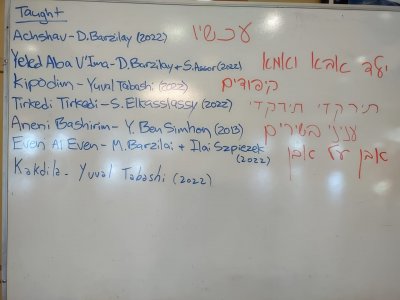 Taught
Achshav - D. Barzilay (2022) עכשיו
Yeled Aba V'Ima - D. Barzilay + S. Assor (2022) ילד אבא ואמא
Kipodim - Yuval Tabashi (2022) קיפודים
Tirkedi Tirkadi - S. Elkasslassy (2022) תירקדי תירקדי
Aneni Bashirim - Y. Ben Simhon (2013) עניני בשירים
Even Al Even - M. Barzilai + Ilai Szpiezek אבן על אבן
(2022)
Kakdila - Yuval Tabashi (2022)